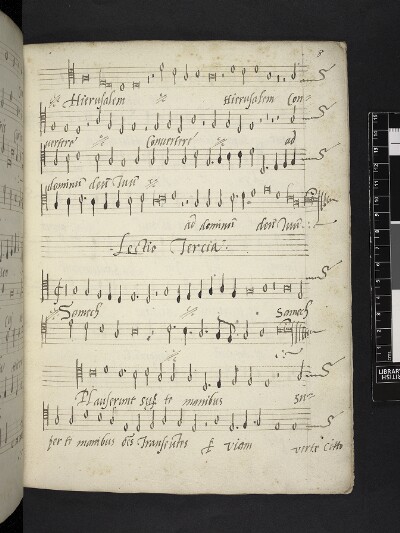 8
Hierusalem Hierusalem Con-
uertere Conuertere ad
dominū deū tuū
ad dominū deū tuū
Lectio Tercia
Samech Samech
Plauserunt sup te manibus su-
per te manibus oēs transeūtes p viam verte Citto
LIBRARY
BRITISH